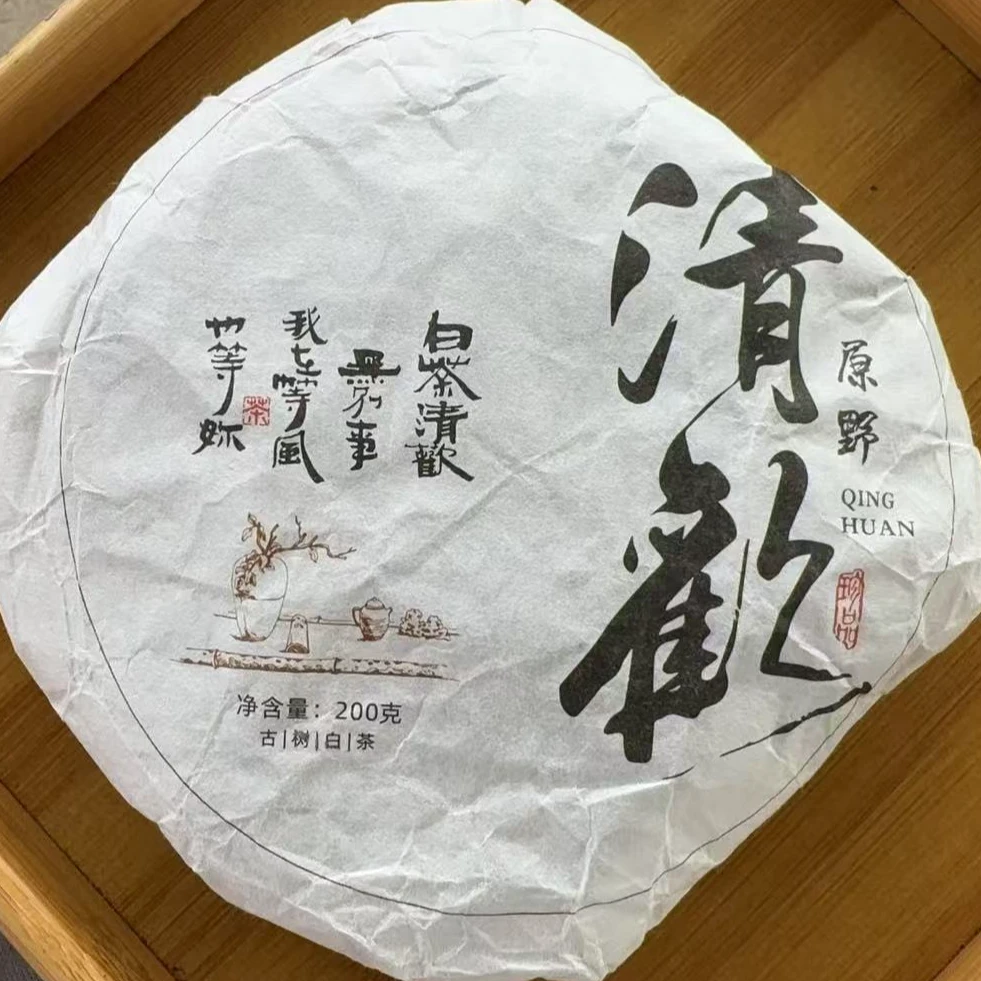 清歡
原野
QING
HUAN
珍品
白茶清歡
無別事
我在等風
也等妳
茶
净含量：200克
古|树|白|茶